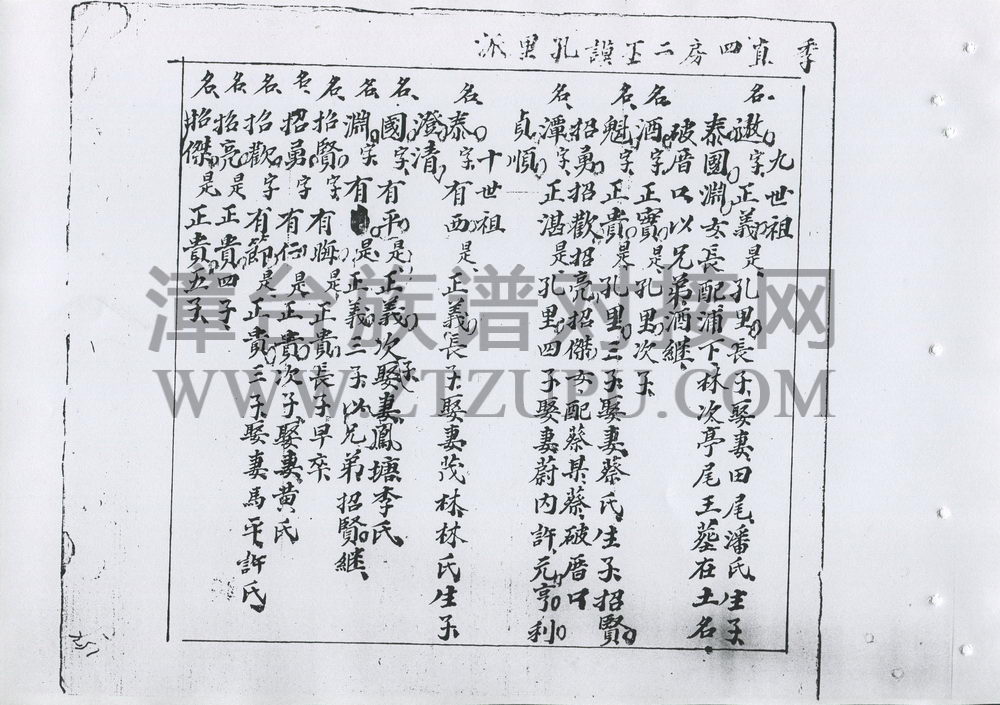 季貞四房二五謨孔里派
九世祖
名遨字正義是孔里長子娶妻田尾潘氏生子
泰國淵女長配浦下林次亭尾王墓在土名
破厝口以兄弟酒継
名酒字正寶是孔里次子
名魁字正貴是孔里三子娶妻蔡氏生子招賢
招勇招歡招亮招傑女配蔡某蔡破厝口
名潭字正湛是孔里四子娶妻蔚内許元亨利
貞順
十世祖
名泰字有西是正義長子娶妻茂林林氏生子
澄清
名國字有平是正義次子娶妻鳳塘李氏
名淵字有是正義三子以兄弟招賢継
名招賢字有晦是正貴長子早卒
名招勇字有任是正貴次子娶妻黃氏
名招歡字有節是正貴三子娶妻馬平許氏
名招亮是正貴四子
名招傑是正貴五子
津台族谱对接网
WWW.ZTZUPU.COM